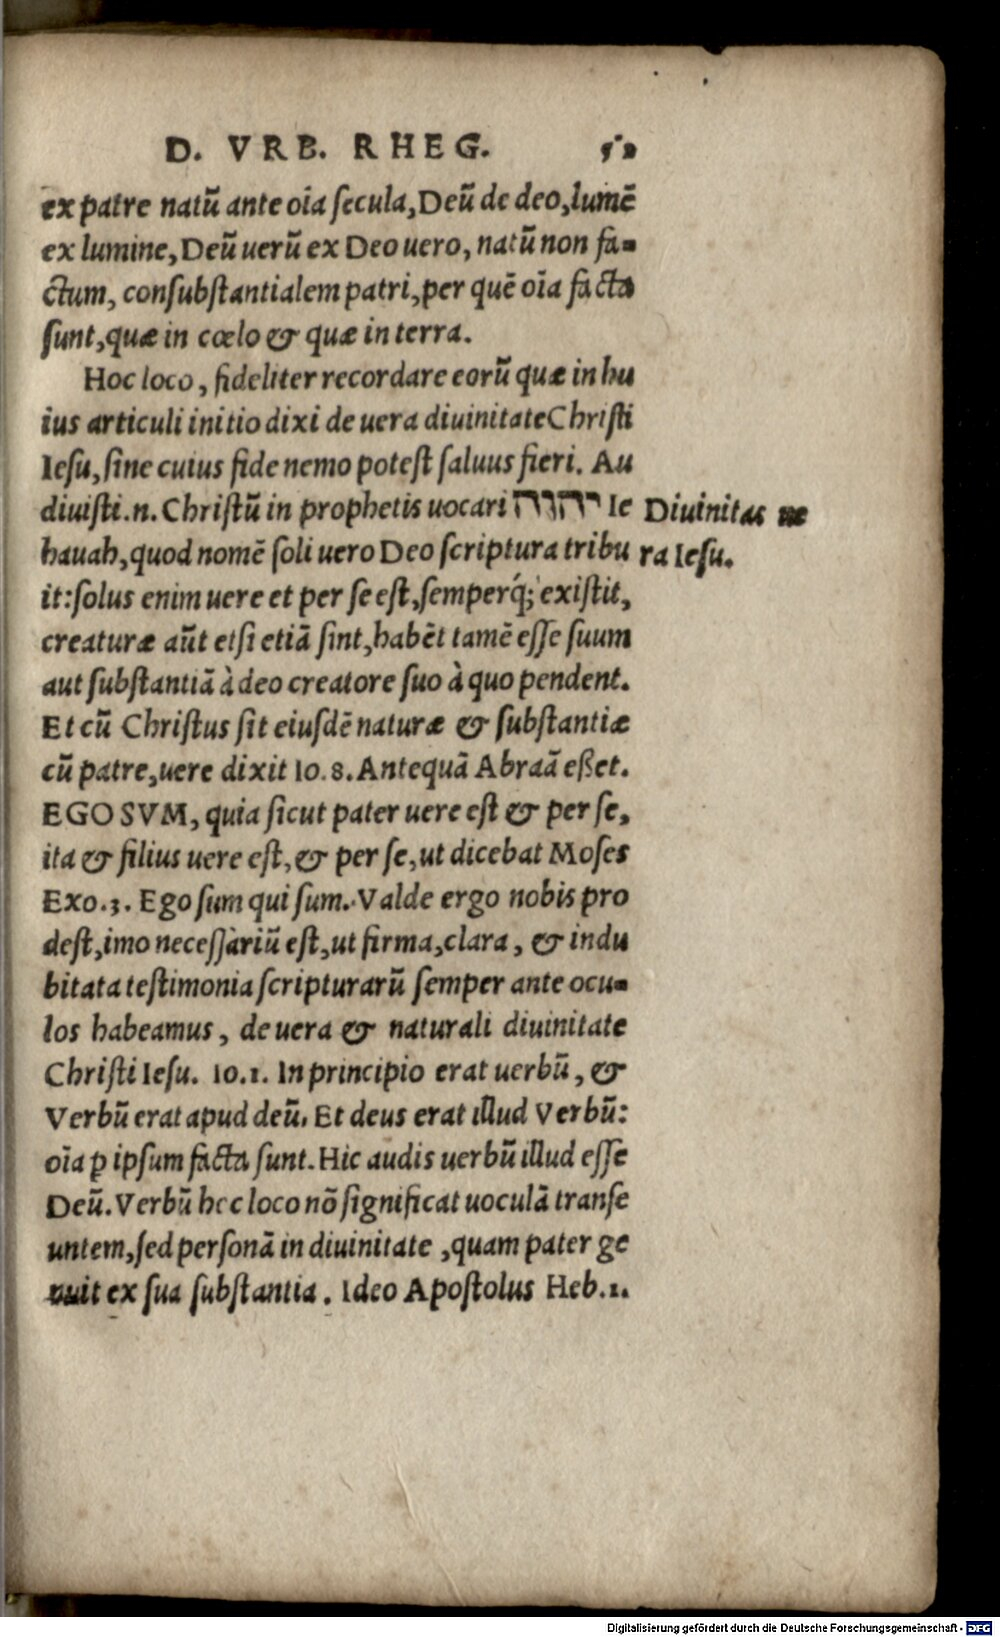 D. VRB. RHEG. 52
ex patre natū ante oīa ſecula, Deū de deo, lumē
ex lumine, Deū uerū ex Deo uero, natū non fa-
ctum, conſubſtantialem patri, per quē oīa facta
ſunt, quæ in cœlo & quæ in terra.
Hoc loco, fideliter recordare eorū quæ in hu
ius articuli initio dixi de uera diuinitate Chriſti
Ieſu, ſine cuius fide nemo poteſt ſaluus fieri. Au
diuiſti .n. Chriſtū in prophetis uocari יהוה Ie
Diuinitas ue
hauah, quod nomē ſoli uero Deo ſcriptura tribu
ra Ieſu.
it: ſolus enim uere et per ſe eſt, ſemperq́; exiſtit,
creaturæ aūt etſi etiā ſint, habēt tamē eſſe ſuum
aut ſubſtantiā à deo creatore ſuo à quo pendent.
Et cū Chriſtus ſit eiuſdē naturæ & ſubſtantiæ
cū patre, uere dixit Io. 8. Antequā Abraā eßet.
EGO SVM, quia ſicut pater uere eſt & per ſe,
ita & filius uere eſt, & per ſe, ut dicebat Moſes
Exo. 3. Ego ſum qui ſum. Valde ergo nobis pro
deſt, imo neceſſariū eſt, ut firma, clara, & indu
bitata teſtimonia ſcripturarū ſemper ante ocu-
los habeamus, de uera & naturali diuinitate
Chriſti Ieſu. Io. 1. In principio erat uerbū, &
Verbū erat apud deū, Et deus erat illud Verbū:
oīa ꝑ ipſum facta ſunt. Hic audis uerbū illud eſſe
Deū. Verbū hoc loco nō ſignificat uoculā tranſe
untem, ſed perſonā in diuinitate, quam pater ge
nuit ex ſua ſubſtantia. Ideo Apoſtolus Heb. 1.
Digitalisierung gefördert durch die Deutsche Forschungsgemeinschaft - DFG